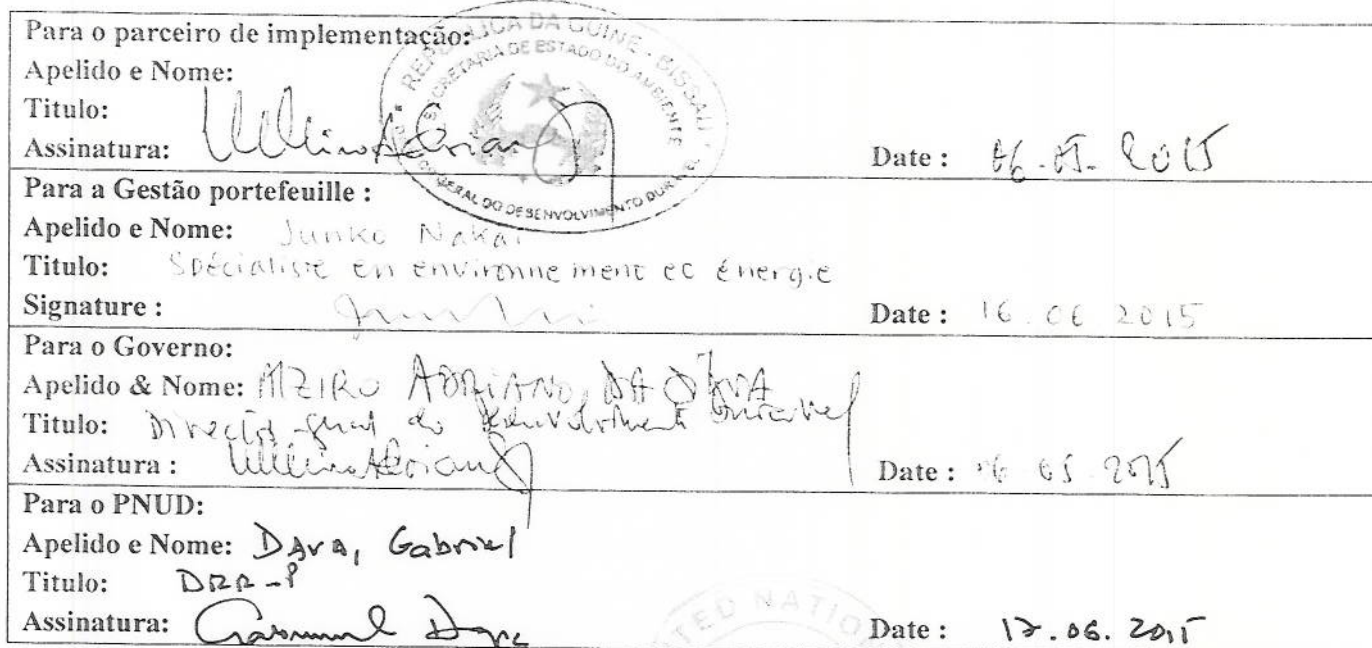 Para o parceiro de implementação:
Apelido e Nome:
Titulo:
Assinatura:
Date :
REPÚBLICA DA GUINE - BISSAU
SECRETARIA DE ESTADO DO AMBIENTE
GERAL DO DESENVOLVIMENTO
Para a Gestão portefeuille :
Apelido e Nome: Junko Nakai
Titulo: Spécialiste en environnement et énergie
Signature :
Date : 16.06 2015
Para o Governo:
Apelido & Nome: ADRIANO DA
Titulo:
Assinatura :
Date : 05 2015
Para o PNUD:
Apelido e Nome: Dava, Gabriel
Titulo: DRR-P
Assinatura: Gabriel Dava
Date : 17.06.2015